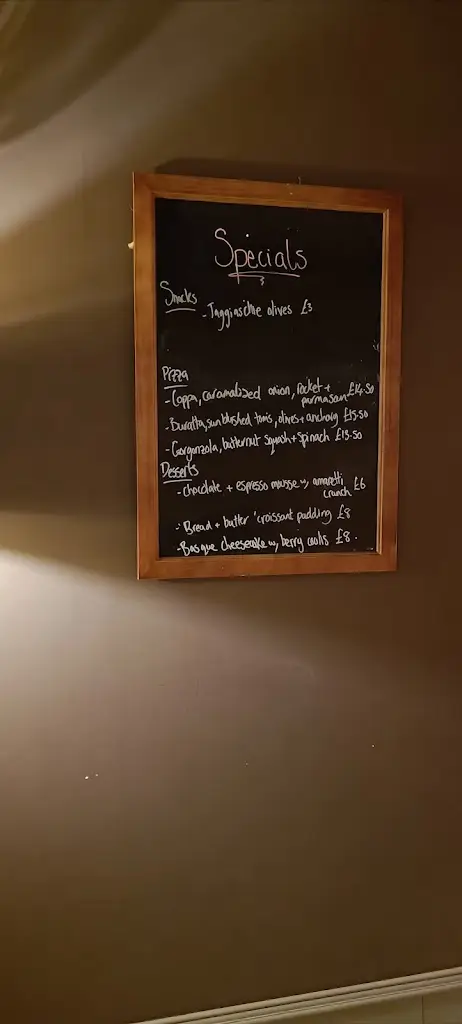 Specials
Snacks
- Taggiasche olives £3
Pizza
- Coppa, caramalized onion, rocket + parmasan £14.50
- Buratta, sun blushed toms, olives + anchovy £15.50
- Gorgonzola, butternut squash + spinach £15.50
Desserts
- chocolate + espresso mousse w, amaretti crunch £6
- Bread + butter 'croissant pudding £8
- Basque cheesecake w, berry coulis £8.